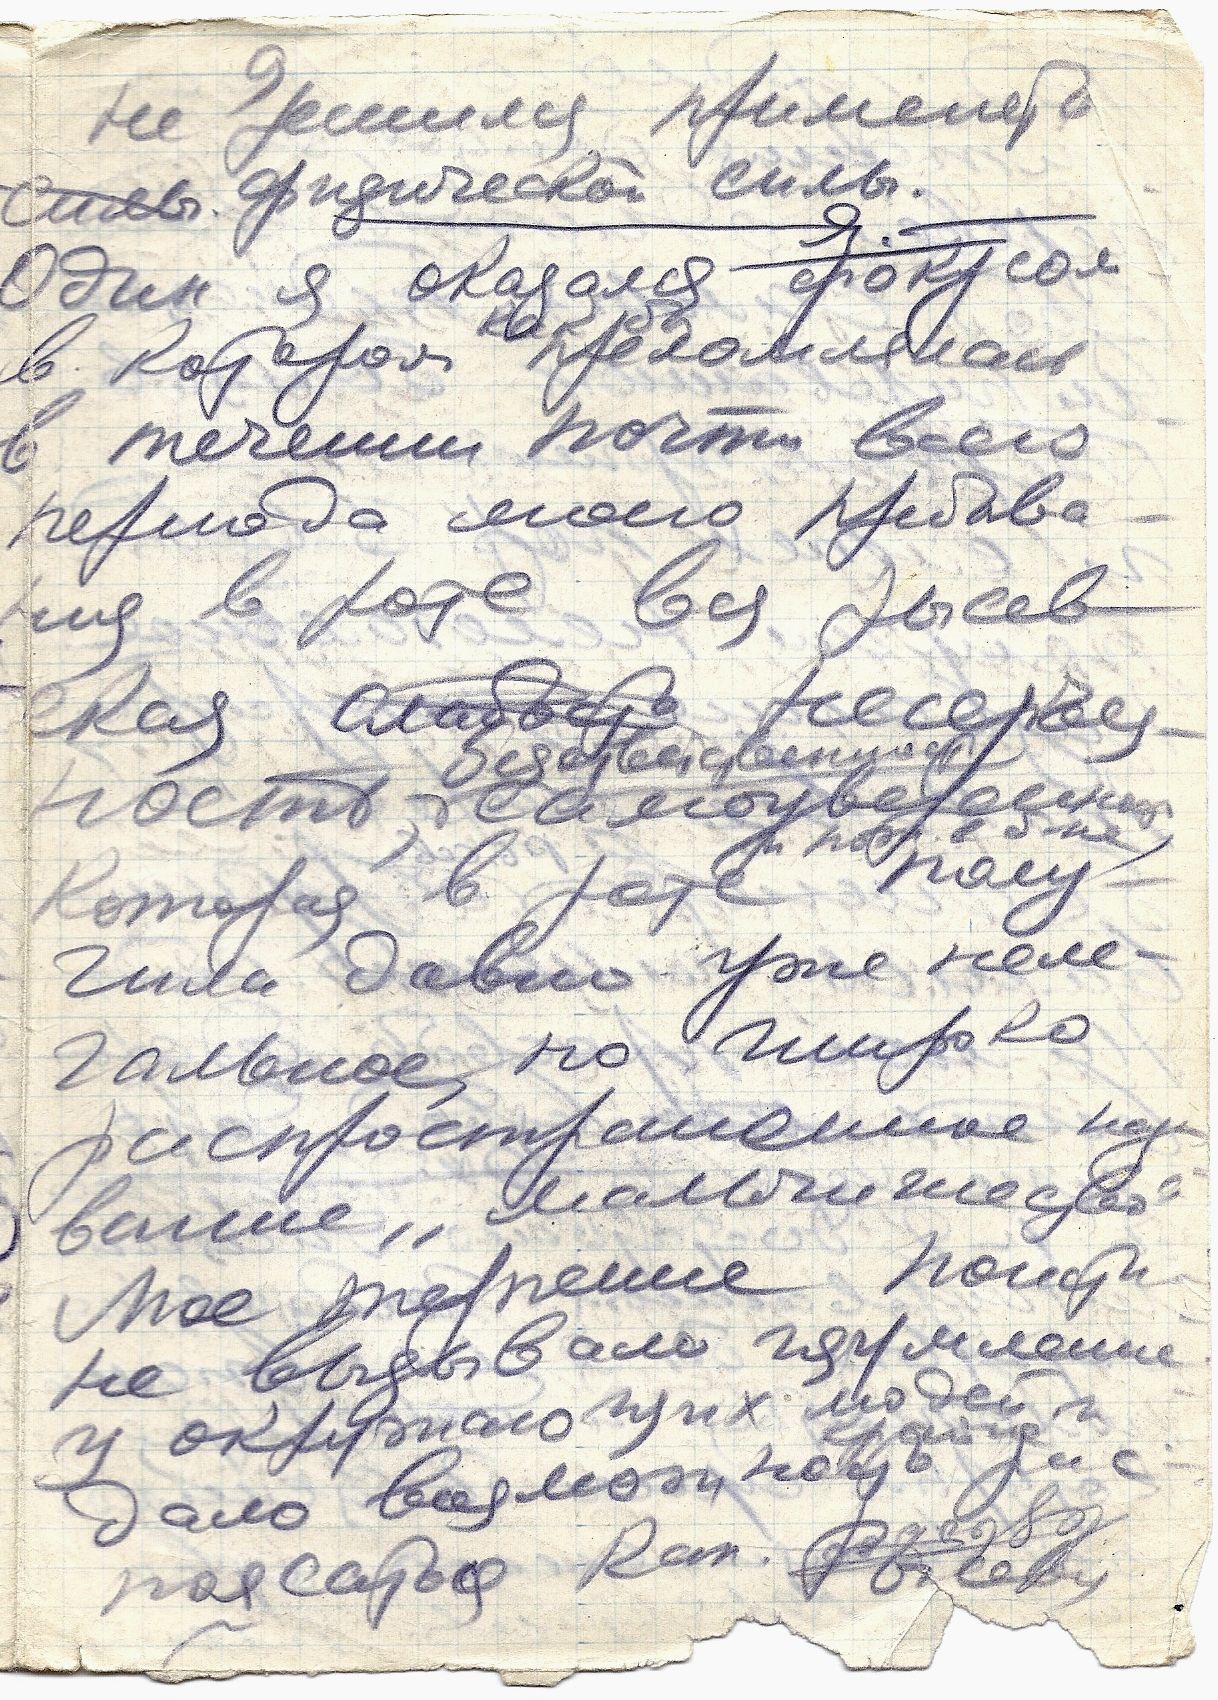 не решился применять
силы. физической силы.
Я.
Один я оказался фокусом
в котором как бы преломлялась
в течении почти всего
периода моего прибыва-
ния в роте вся Рысев-
ская слабость несерьез-
ность, безответственность
самоуверенность
которая в роте полу-
чила давно уже неле-
гальное, но широко
распространенное наз
вание „мальчишества"
Мое терпение
не вызывало изумление
у окружающих людей и
дало возможность рас-
поясаться кап. Рысеву